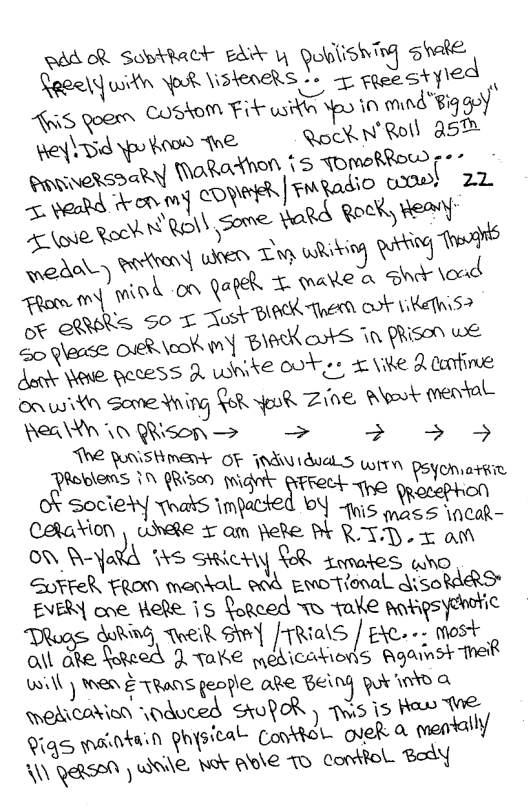 Add OR Subtract Edit 4 publishing share
freely with your listeners.. I Freestyled
This poem custom Fit with you in mind "Big guy"
Hey! Did you know the Rock N' Roll 25th
Anniverssary Marathon is tomorrow...
I Heard it on my CD player/FM Radio wow! 22
I love Rock N' Roll, some Hard Rock, Heavy
medal, Anthony when I'm writing putting thoughts
From my mind on paper I make a shit load
OF eRROR's so I Just BlAck Them out like This→
so please over look my Black outs in prison we
dont HAve Access 2 white out.. I like 2 continue
on with something for your Zine About mental
Health in prison → → → → →
The punishment of individuals with psychiatric
problems in prison might Affect the preception
of society thats impacted by this mass incar-
ceration, where I am Here At R.J.D. I am
on A-yard its strictly for Inmates who
suffer from mental and Emotional disorders.
EVERY one Here is forced to take Antipsychotic
Drugs during their stay/Trials/Etc... most
all are forced 2 take medications Against their
will, men & Trans people are Being put into a
medication induced stupor, This is How the
pigs maintain physical control over a mentally
ill person, while not Able to control Body